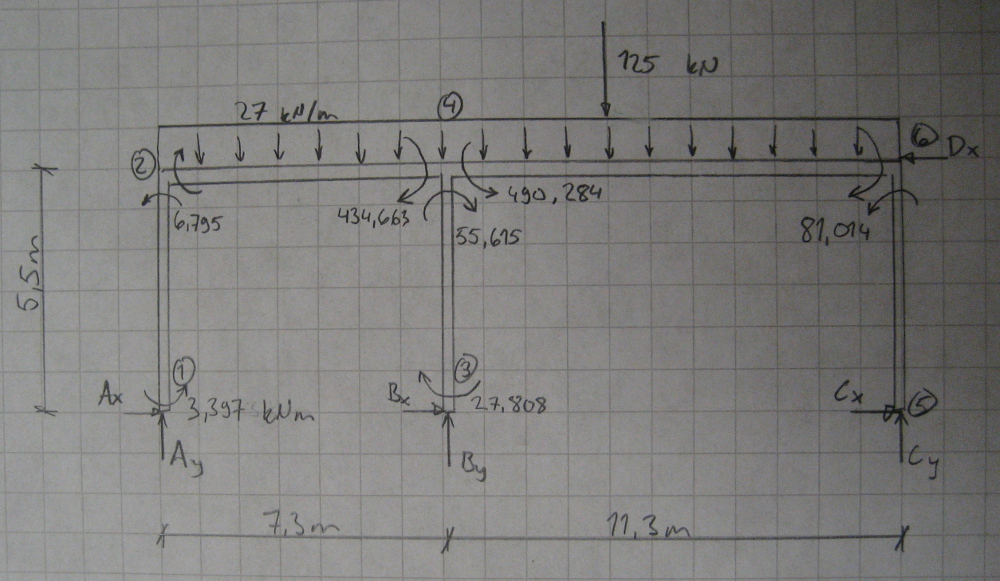 125 kN
27 kN/m
4
2
6
Dx
490,284
6,795
434,663
55,615
81,014
5,5m
1
3
Ax
3,397 kNm
Bx
27,808
Cx
5
Ay
By
Cy
7,3m
11,3m